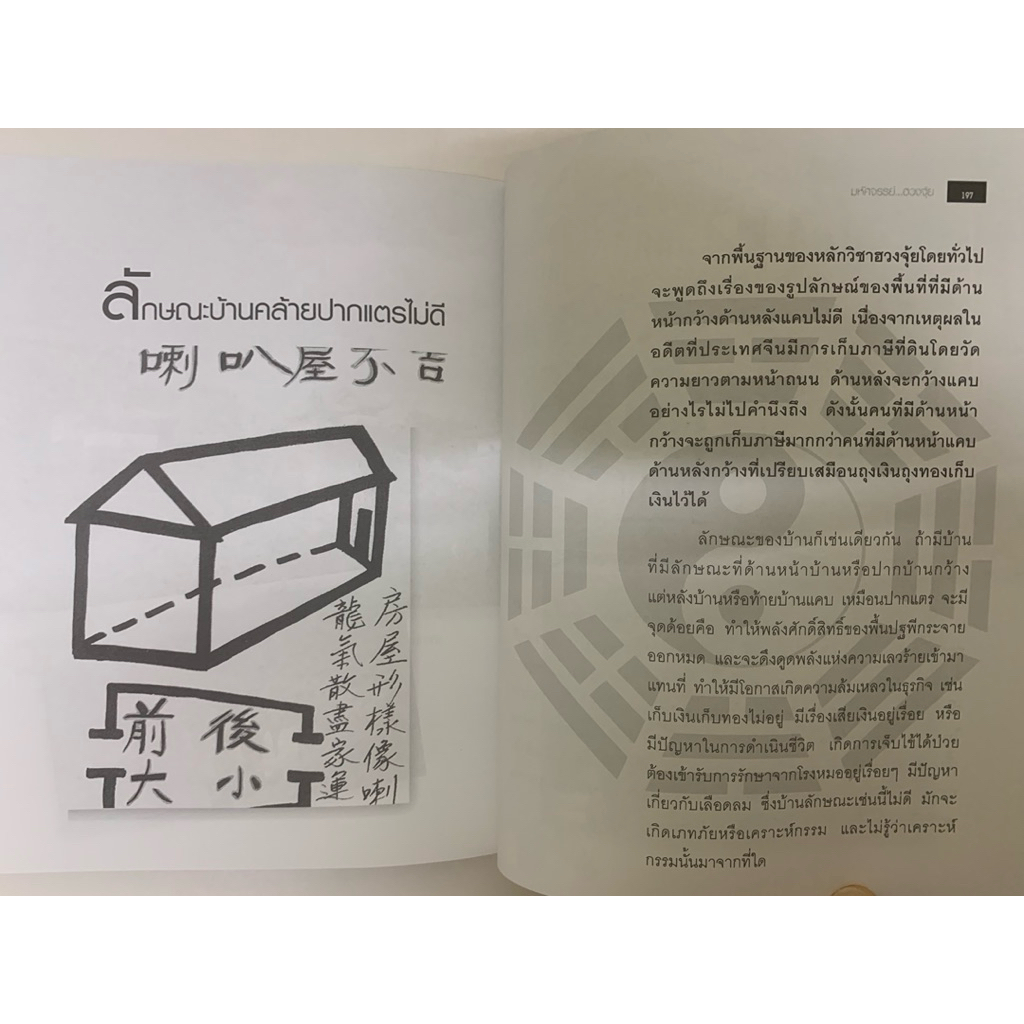 ลักษณะบ้านคล้ายปากแตรไม่ดี
喇叭屋不吉
房屋形樣像喇
龍氣散盡家運
前後
大小
มหัศจรรย์...ฮวงจุ้ย 197
จากพื้นฐานของหลักวิชาฮวงจุ้ยโดยทั่วไป
จะพูดถึงเรื่องของรูปลักษณ์ของพื้นที่ที่มีด้าน
หน้ากว้างด้านหลังแคบไม่ดี เนื่องจากเหตุผลใน
อดีตที่ประเทศจีนมีการเก็บภาษีที่ดินโดยวัด
ความยาวตามหน้าถนน ด้านหลังจะกว้างแคบ
อย่างไรไม่ไปคำนึงถึง ดังนั้นคนที่มีด้านหน้า
กว้างจะถูกเก็บภาษีมากกว่าคนที่มีด้านหน้าแคบ
ด้านหลังกว้างที่เปรียบเสมือนถุงเงินถุงทองเก็บ
เงินไว้ได้
ลักษณะของบ้านก็เช่นเดียวกัน ถ้ามีบ้าน
ที่มีลักษณะที่ด้านหน้าบ้านหรือปากบ้านกว้าง
แต่หลังบ้านหรือท้ายบ้านแคบ เหมือนปากแตร จะมี
จุดด้อยคือ ทำให้พลังศักดิ์สิทธิ์ของพื้นปฐพีกระจาย
ออกหมด และจะดึงดูดพลังแห่งความเลวร้ายเข้ามา
แทนที่ ทำให้มีโอกาสเกิดความล้มเหลวในธุรกิจ เช่น
เก็บเงินเก็บทองไม่อยู่ มีเรื่องเสียเงินอยู่เรื่อย หรือ
มีปัญหาในการดำเนินชีวิต เกิดการเจ็บไข้ได้ป่วย
ต้องเข้ารับการรักษาจากโรงหมออยู่เรื่อยๆ มีปัญหา
เกี่ยวกับเลือดลม ซึ่งบ้านลักษณะเช่นนี้ไม่ดี มักจะ
เกิดเภทภัยหรือเคราะห์กรรม และไม่รู้ว่าเคราะห์
กรรมนั้นมาจากที่ใด